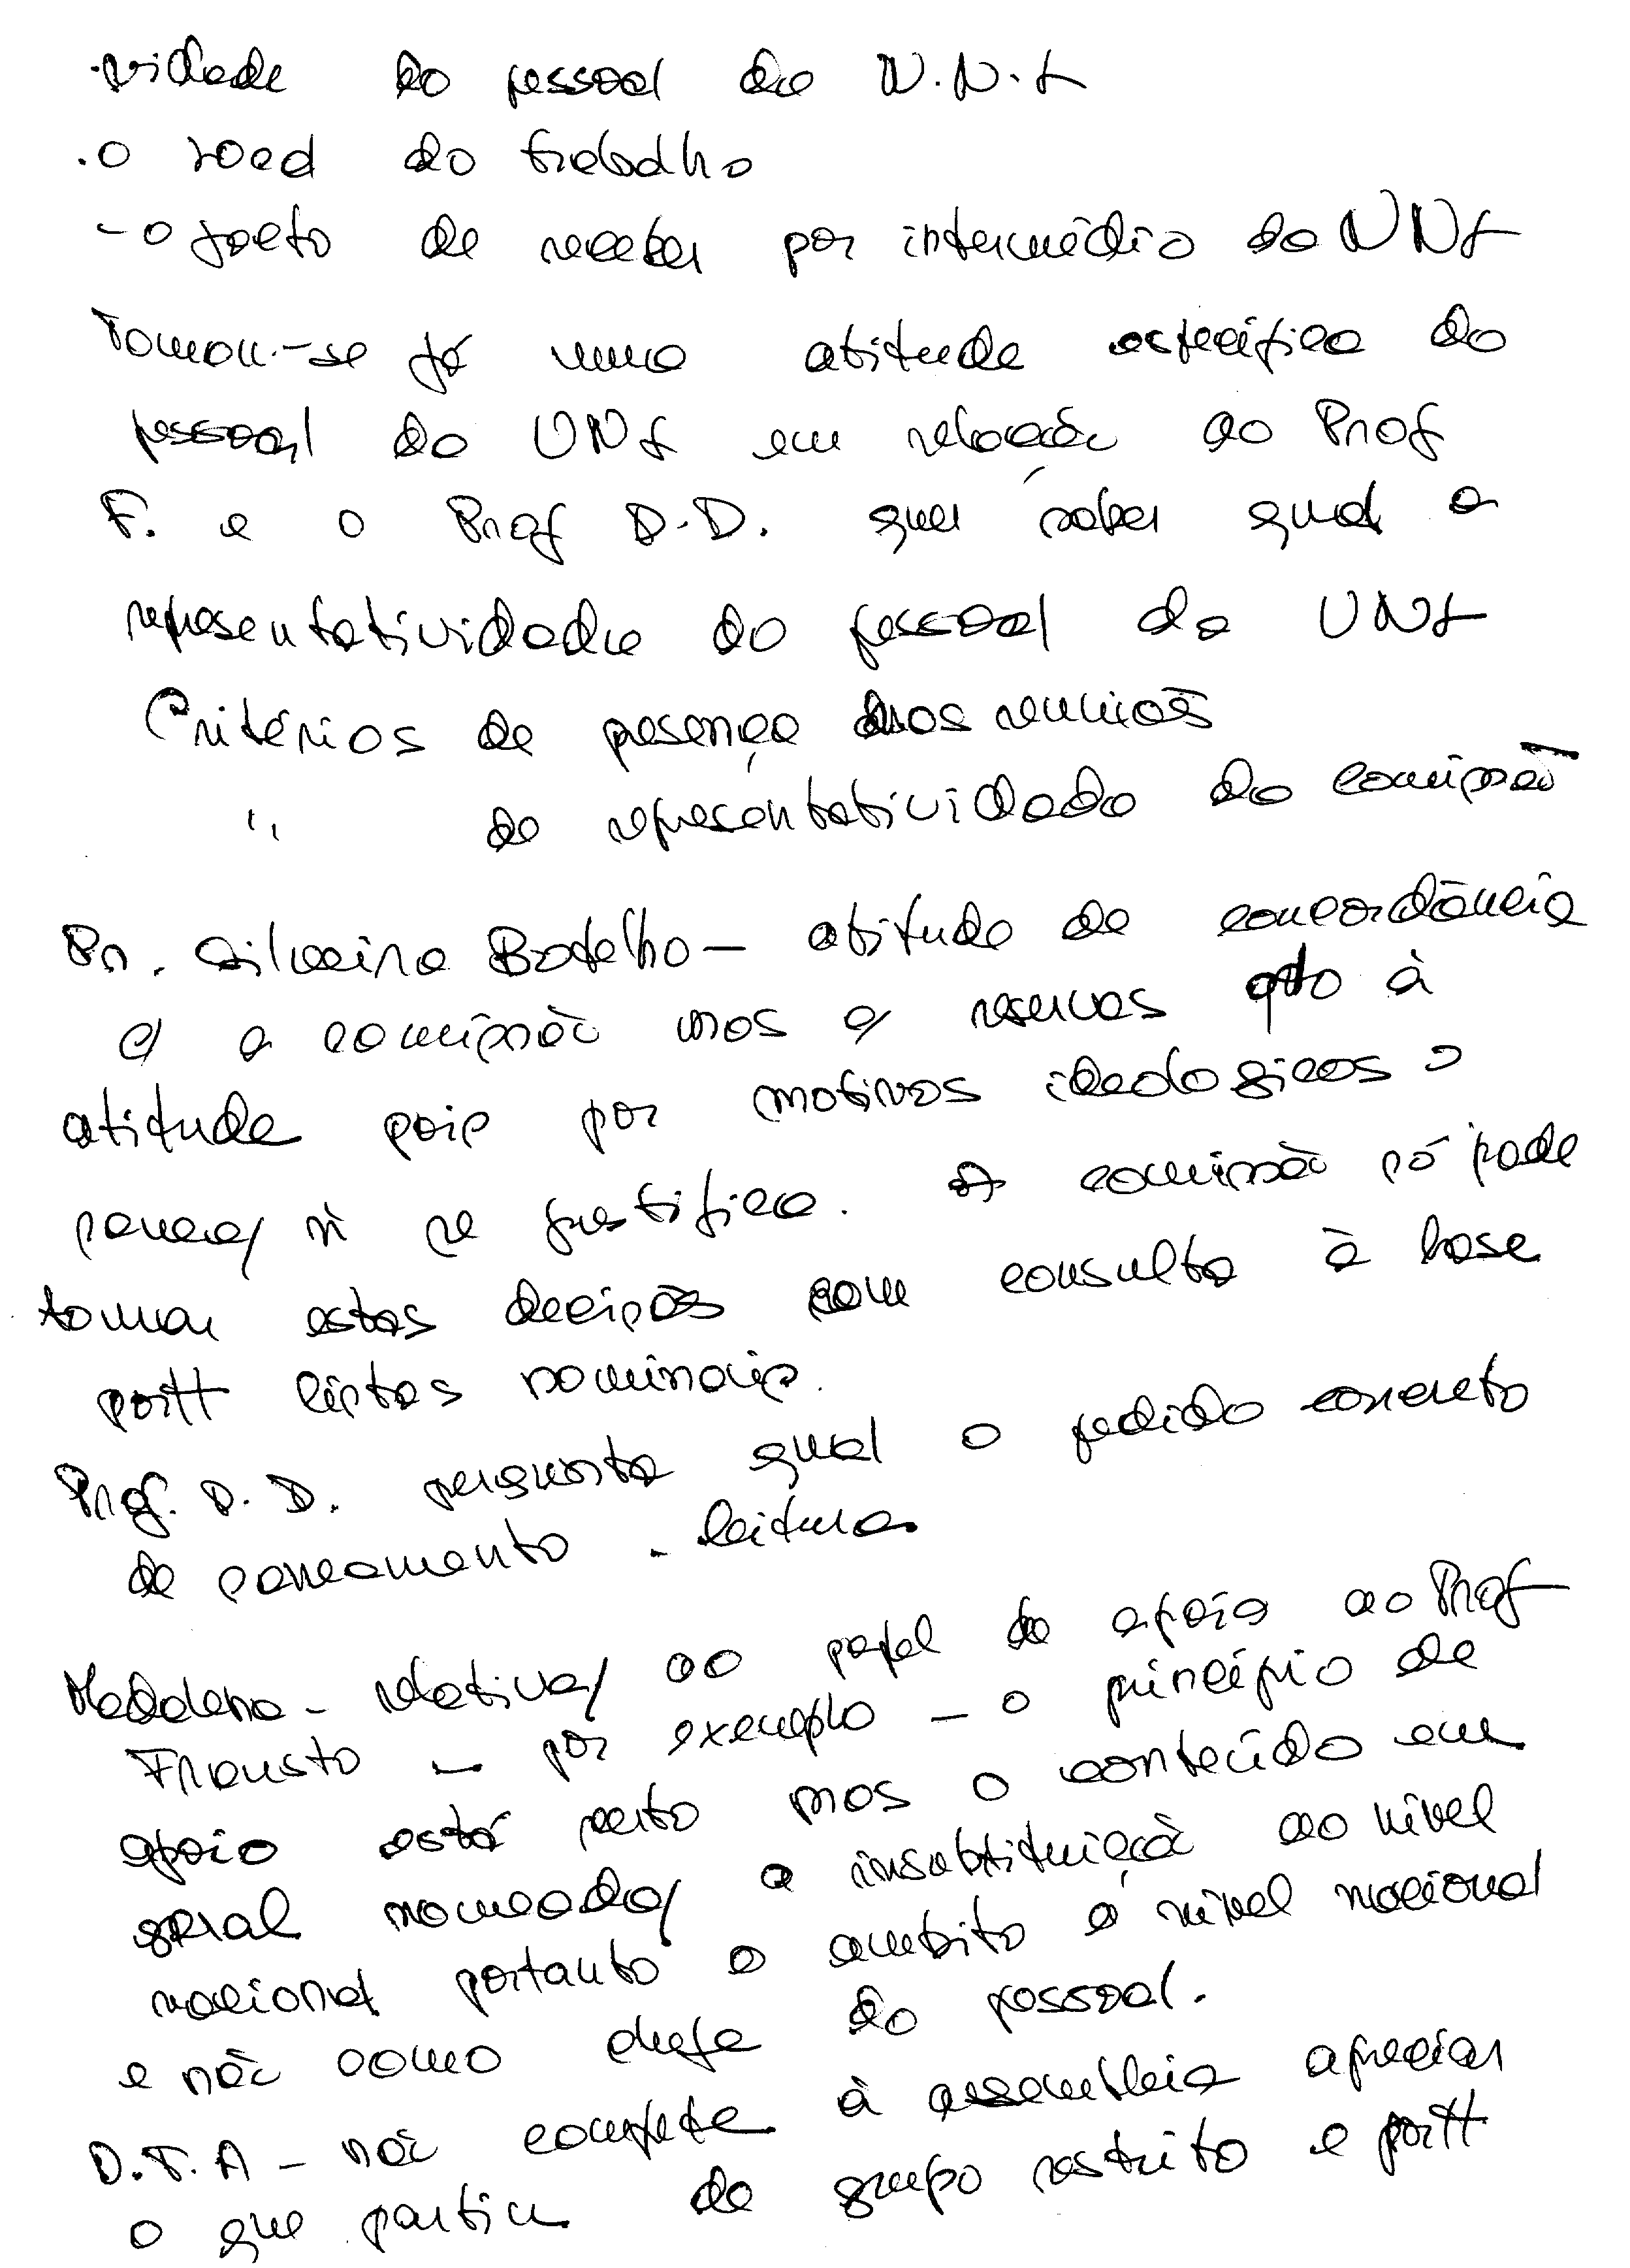 .vidade do pessoal do N.N.f
. o local do trabalho
- o facto de receber por intermédio do NNf
Tomou-se já uma atitude específica do
pessoal do UNf em relação ao Prof
F. e o Prof D.D. quer saber qual a
representatividade do pessoal do UNf
Critérios de presença nas reuniões
" de representatividade da comissão
Silveira Botelho - atitude de concordância
c/ a comissão mas c/ reservas qto à
atitude pois por motivos ideologicos o
sanea/ ñ se justifica. A comissão só pode
tomar estas decisões com consulta à base
portt listas nominais.
Prof. D. D. pergunta qual o pedido concreto
de saneamento - leitura
Madalena - relativa/ ao papel de apoio ao Prof
Frausto - por exemplo - o princípio de
apoio está certo mas o conteúdo em
geral nomeada/ a insubstituição ao nível
nacional portanto o ambito é nível nacional
e não como chefe do pessoal.
D.F.A - não compete à assembleia apreciar
o que partiu de grupo restrito e portt